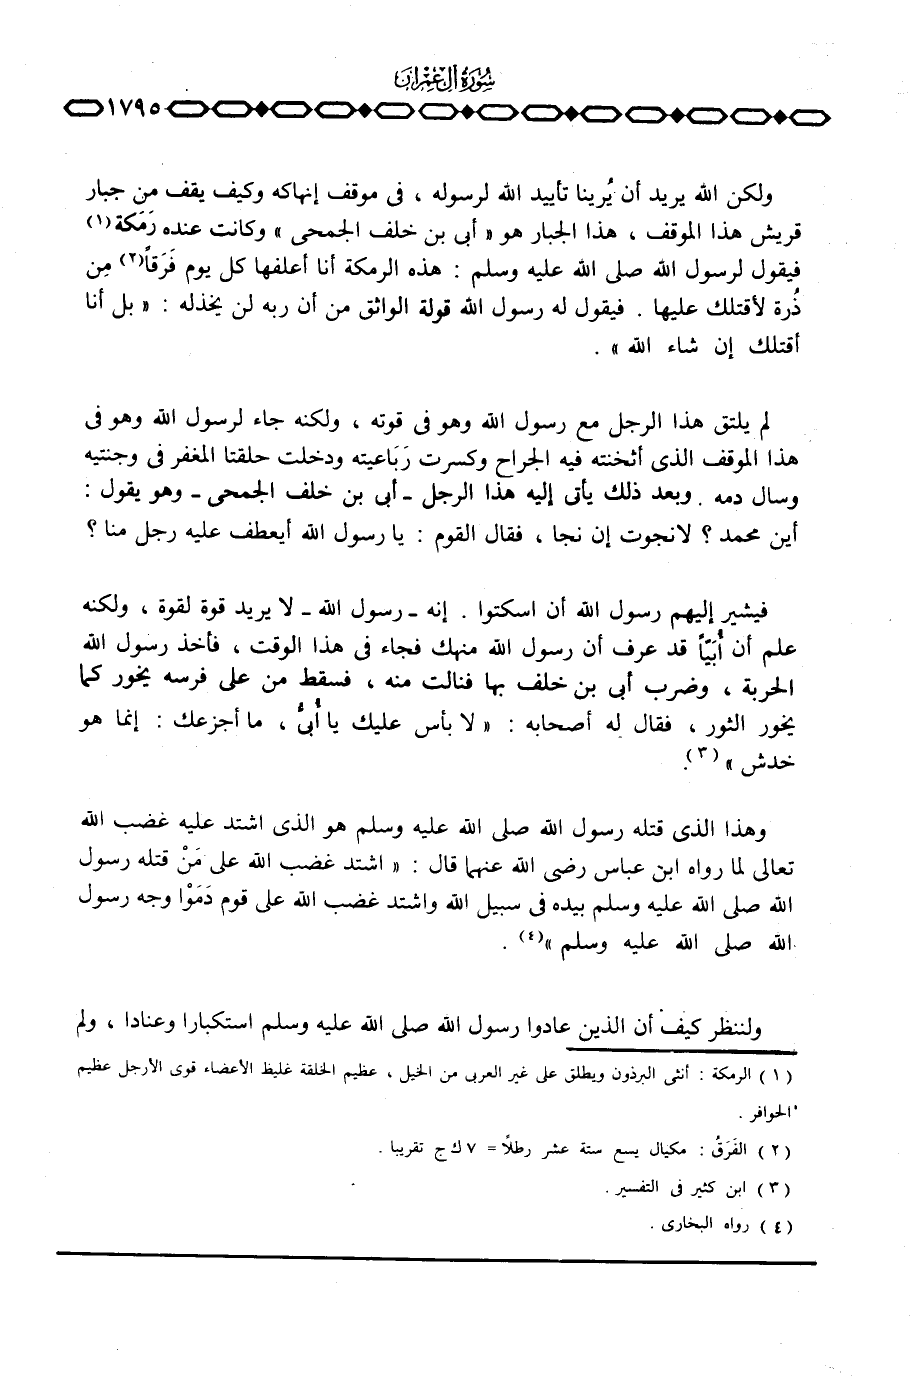 سُورَةُ آلِ عِمْرَان
١٧٩٥
ولكن الله يريد أن يُرينا تأييد الله لرسوله ، فى موقف إنهاكه وكيف يقف من جبار
قريش هذا الموقف ، هذا الجبار هو « أبى بن خلف الجمحى » وكانت عنده رَمَكة(١)
فيقول لرسول الله صلى الله عليه وسلم : هذه الرمكة أنا أعلفها كل يوم فَرَقاً(٢) مِن
ذُرة لأقتلك عليها . فيقول له رسول الله قولة الواثق من أن ربه لن يخذله : « بل أنا
أقتلك إن شاء الله » .
لم يلتق هذا الرجل مع رسول الله وهو فى قوته ، ولكنه جاء لرسول الله وهو فى
هذا الموقف الذى أثخنته فيه الجراح وكسرت رَبَاعيته ودخلت حلقتا المغفر فى وجنتيه
وسال دمه . وبعد ذلك يأتى إليه هذا الرجل ـ أبى بن خلف الجمحى ـ وهو يقول :
أين محمد ؟ لانجوت إن نجا ، فقال القوم : يا رسول الله أيعطف عليه رجل منا ؟
فيشير إليهم رسول الله أن اسكتوا . إنه ـ رسول الله ـ لا يريد قوة لقوة ، ولكنه
علم أن أُبَيّاً قد عرف أن رسول الله منهك فجاء فى هذا الوقت ، فأخذ رسول الله
الحربة ، وضرب أبى بن خلف بها فنالت منه ، فسقط من على فرسه يخور كما
يخور الثور ، فقال له أصحابه : « لا بأس عليك يا أُبىُّ ، ما أجزعك : إنما هو
خدش » (٣).
وهذا الذى قتله رسول الله صلى الله عليه وسلم هو الذى اشتد عليه غضب الله
تعالى لما رواه ابن عباس رضى الله عنهما قال : « اشتد غضب الله على مَنْ قتله رسول
الله صلى الله عليه وسلم بيده فى سبيل الله واشتد غضب الله على قوم دَمَوْا وجه رسول
الله صلى الله عليه وسلم »(٤) .
ولننظر كيف أن الذين عادوا رسول الله صلى الله عليه وسلم استكبارا وعنادا ، ولم
(١) الرمكة : أنثى البرذون ويطلق على غير العربى من الخيل ، عظيم الخلقة غليظ الأعضاء قوى الأرجل عظيم
الحوافر .
(٢) الفَرَقُ : مكيال يسع ستة عشر رطلاً = ٧ ك ج تقريبا .
(٣) ابن كثير فى التفسير .
(٤) رواه البخارى .